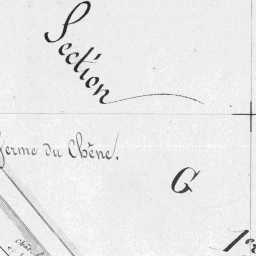 Section
Ferme du Chêne.
G